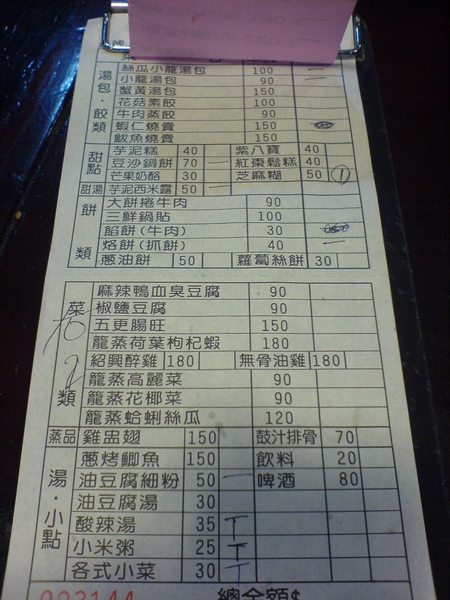 絲瓜小籠湯包 100 一
小籠湯包 90
蟹黃湯包 150
花菇素餃 100
牛肉蒸餃 90
蝦仁燒賣 150
鮁魚燒賣 150
湯包·餃類
芋泥糕 40 紫八寶 40
豆沙鍋餅 70 一 紅棗鬆糕 40
芒果奶酪 30 芝麻糊 50 ①
甜點
甜湯 芋泥西米露 50 一
大餅捲牛肉 90
三鮮鍋貼 100
餡餅(牛肉) 30
烙餅(抓餅) 40 一
蔥油餅 50 蘿蔔絲餅 30
餅類
麻辣鴨血臭豆腐 90
椒鹽豆腐 90
五更腸旺 150
籠蒸荷葉枸杞蝦 180
紹興醉雞 180 無骨油雞 180
籠蒸高麗菜 90
籠蒸花椰菜 90
籠蒸蛤蜊絲瓜 120
菜類
蒸品 雞盅翅 150 鼓汁排骨 70
蔥烤鯽魚 150 飲料 20
油豆腐細粉 50 一 啤酒 80
油豆腐湯 30
酸辣湯 35 丅
小米粥 25 丅
各式小菜 30 丅
湯·小點
003144 總金額$